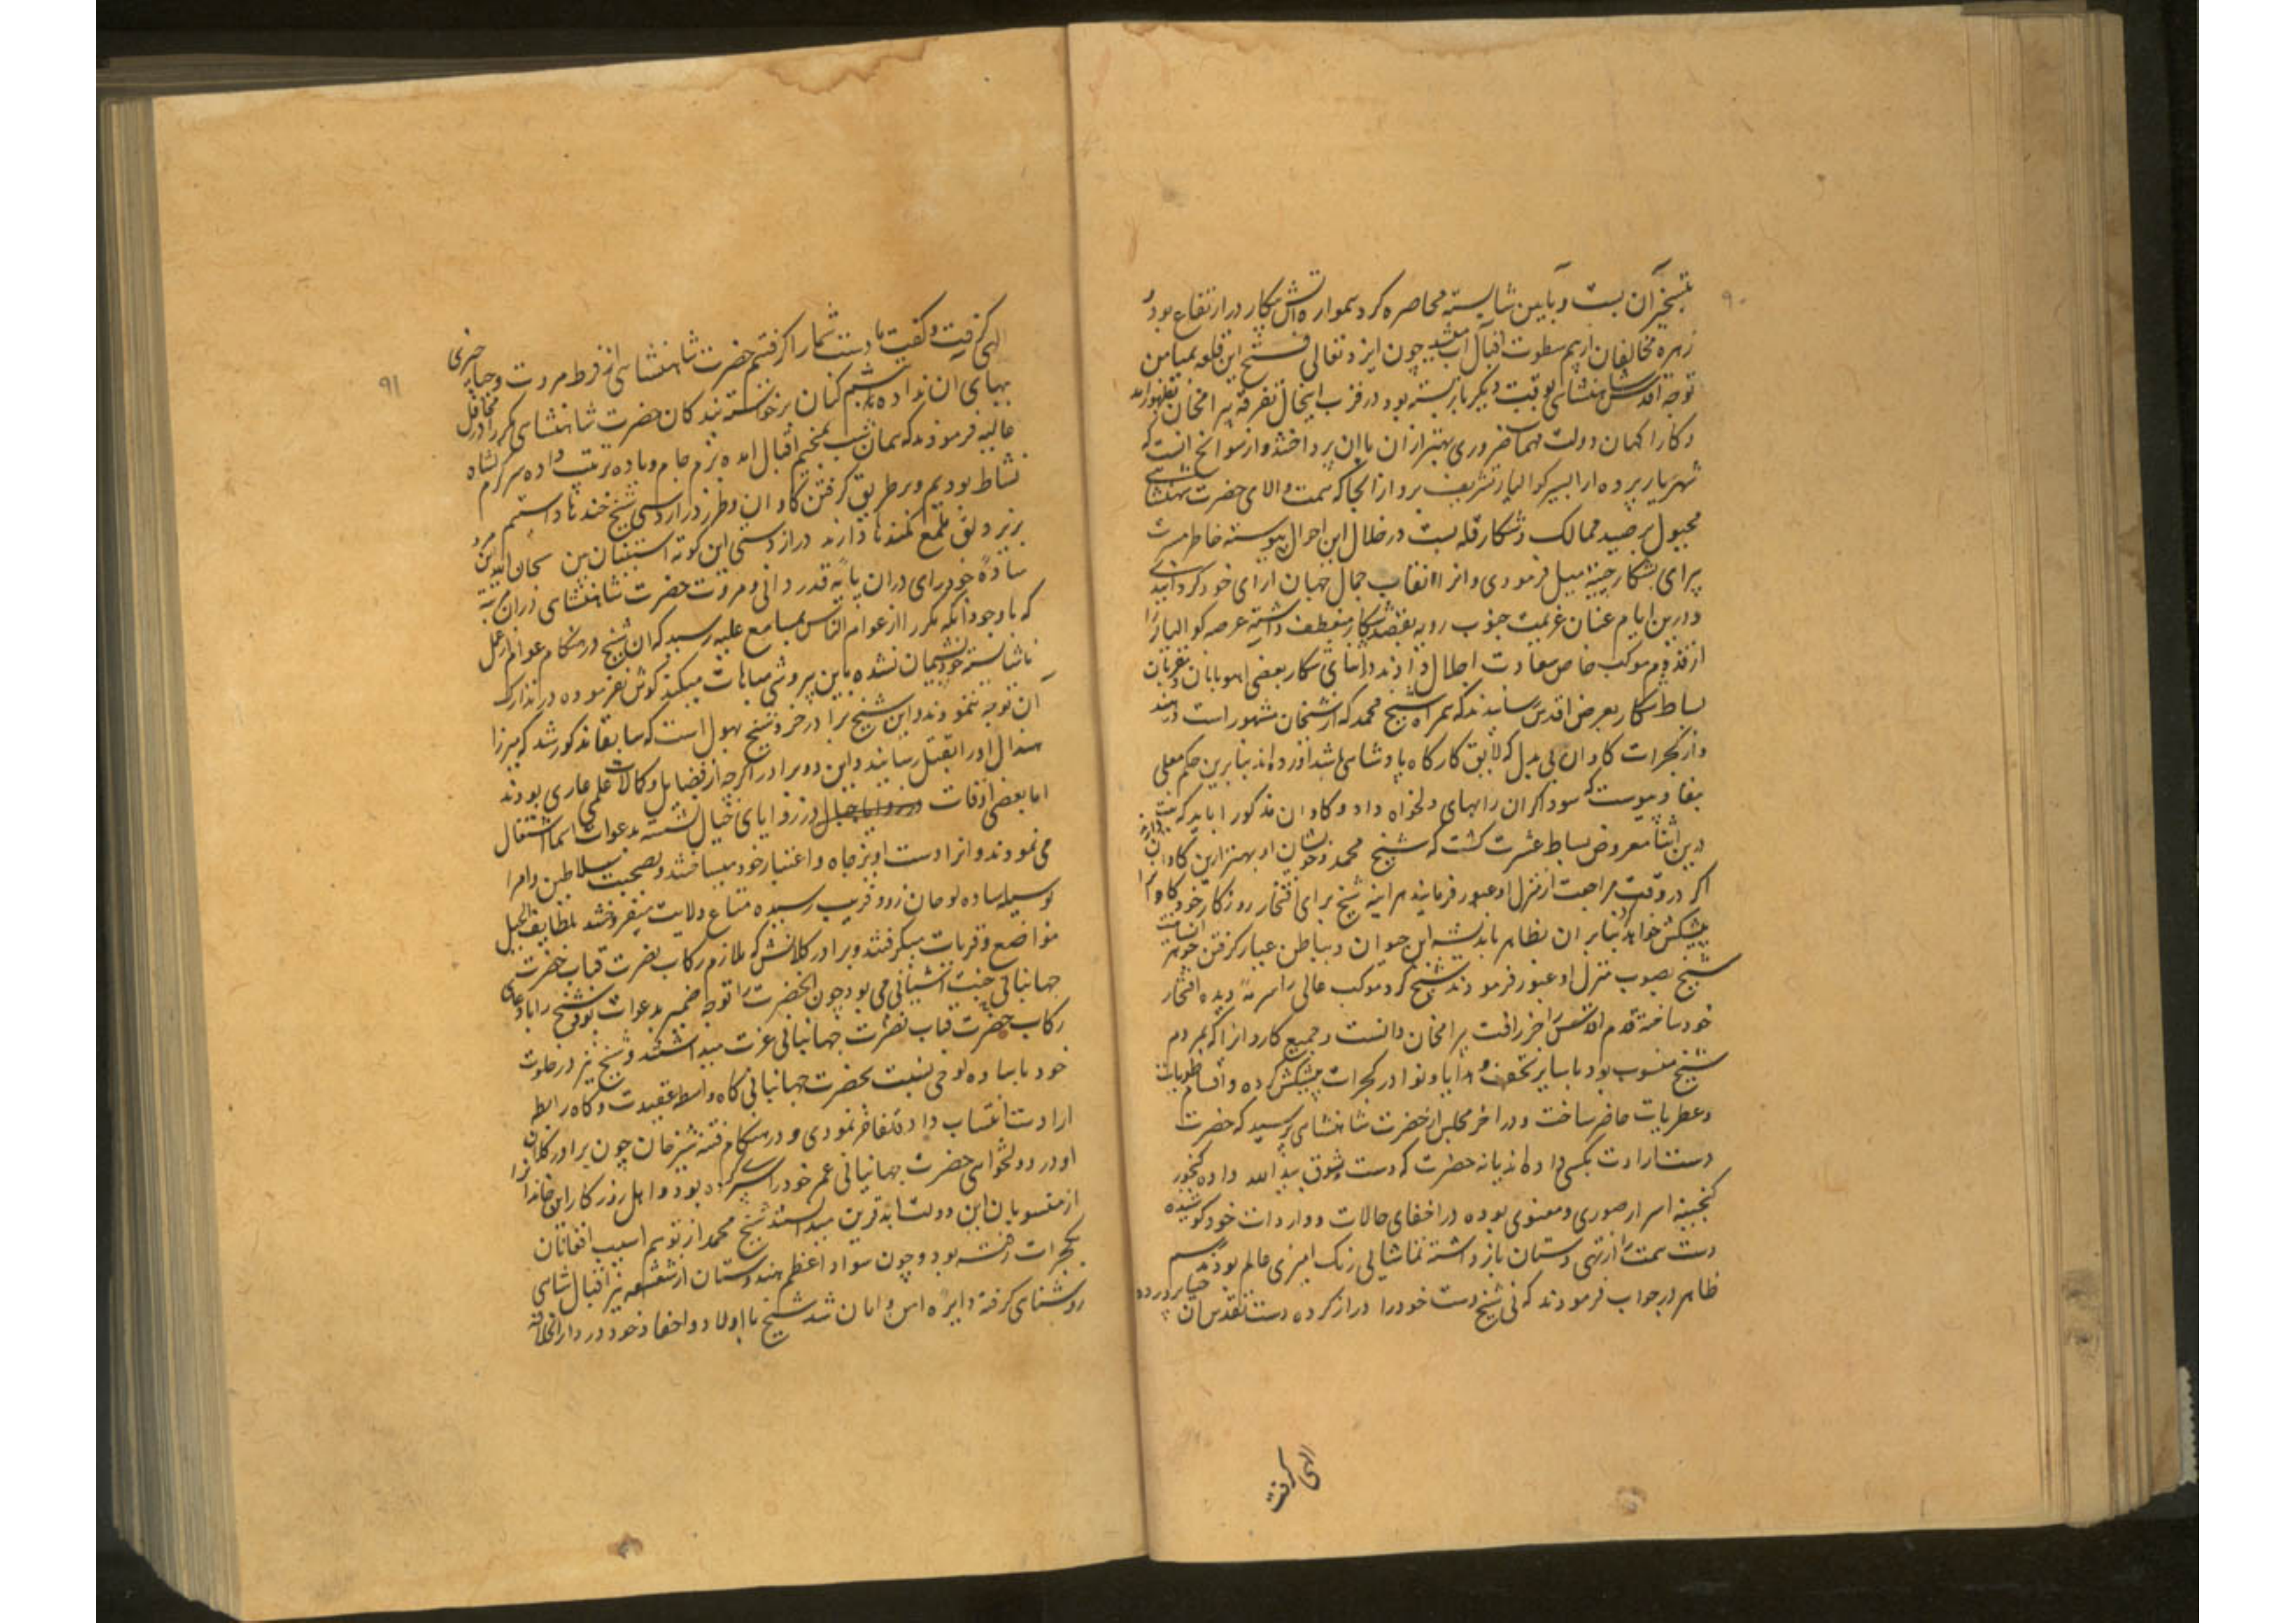 ۹۰
بتسخیر آن بست و بآیین شایسته محاصره کرد همواره آتش پیکار در ارتفاع بود و
زهره مخالفان از بیم سطوت اقبال آب میشد چون ایزد تعالی فتح این قلعه بمیامن
توجه اقدس شاهنشاهی بوقت دیگر باز بسته بود در قرب اینحال تفرقه بیرامخان بظهور آمد
و کارآگهان دولت مهمات ضروری بهتر از ان بان پرداختند و از سوانح انست که
شهریار پرده ارا بسیر کوالیار تشریف برد از انجا که همت والای حضرت شهنشاهی
مجبول بر صید ممالک و شکار قله بست در خلال این احوال پیوسته خاطر مسرت
پیرای بشکار چیته میل فرمودی و انرا نقاب جمال جهان ارای خود کردانیدی
درین ایام عنان عزیمت جنوب رویه بقصد شکار منعطف داشته عرصه کوالیار را
از قدوم موکب خاص سعادت اجلال دادند در اثنای شکار بعضی اهوبانان و مقربان
بساط شکار بعرض اقدس رسانیدند که همراه شیخ محمد که از شیخان مشهور است در هند
و از کجرات کاوان بی بدل که لایق کارکاه پادشاهی باشد اورده اند بنابرین حکم معلی
بنفاذ پیوست که سوداکران را بهای دلخواه داد و کاوان مذکور را باید کرفت
درین اثنا معروض بساط عشرت کشت که شیخ محمد و خویشان او بهتر ازین کاوان دارند
اکر در وقت مراجعت از منزل او عبور فرمایند هر اینه شیخ برای افتخار روزکار خود کاوانرا
پیشکش خواهد کرد بنابر ان بظاهر باندیشه این حیوان و بباطن عیار کرفتن جوهر انسانیت
شیخ بصوب منزل او عبور فرمودند شیخ کرد موکب عالی را سرمه دیده افتخار
خود ساخته قدوم اقدس را حرز رافت بیرامخان دانست و جمیع کاوانرا که بمردم
شیخ منسوب بود با سایر تحف و هدایا و نوادر کجرات پیشکش کرده و اقسام حلویات
و عطریات حاضر ساخت و در اخر مجلس از حضرت شاهنشاهی پرسید که حضرت
دست ارادت بکسی داده اند یا نه حضرت که دست بشوق بید الله داده کنجور
کنجینه اسرار صوری و معنوی بوده در اخفای حالات و واردات خود کوشیده
دست همت را از تهی دستان باز داشته تماشایی رنک امیزی عالم بودند بسم
ظاهر در جواب فرمودند که نی شیخ دست خود را دراز کرده دست تقدس ان حیا پرورده
الهی کرفت
۹۱
الهی کرفت و کفت ما دست شما را کرفتیم حضرت شاهنشاهی از فرط مروت و حیا چیزی
بپای ان نداده تبسم کنان برخواستند بندکان حضرت شاهنشاهی مکرر در محافل
عالیه فرمودند که همان شب بمخیم اقبال امده بزم جام و باده ترتیب داده سرکرم
نشاط بودیم و بر طریق کرفتن کاوان و طرز دراز دستی شیخ خندها داشتیم
بزیر دلق ملمع کمندها دارند درازدستی این کوته استینان بین سبحان الله این مرد
ساده خودرای دران پایه قدردانی و مروت حضرت شاهنشاهی دران مرتبه
که با وجود انکه مکررا از عوام الناس بمسامع علیه رسید که ان شیخ در هنکام عوام از عمل
ناشایسته خود پشیمان نشده باین بیروشی مباهات میکند کوش نفرموده در تدارک
ان توجه ننمودند و این شیخ برادر خرد شیخ بهول است که سابقا مذکور شد که میرزا
هندال او را بقتل رسانید و این دو برادر اکرچه از فضایل و کمالات علمی عاری بودند
اما بعضی اوقات در زوایای جبال نشسته بدعوات اسما اشتغال
می نمودند و انرا دست اویز جاه و اعتبار خود میساختند و بصحبت سلاطین و امرا
بوسیله ساده لوحان زود فریب رسیده متاع ولایت میفروختند بلطایف الحیل
مواضع و قریات میکرفتند و برادر کلانش که ملازم رکاب نصرت قباب حضرت
جهانبانی جنت اشیانی می بود چون انحضرت را توجه ضمیر بدعوات بود شیخ را با دعای
رکاب حضرت قباب نصرت جهانبانی عزت میداشتند و شیخ نیز در خلوت
خود با ساده لوحی نسبت بحضرت جهانبانی کاه واسطه عقیدت و کاه رابطه
ارادت انتساب داده تفاخر نمودی و در هنکام فتنه شیر خان چون برادر کلان
او در دولتخواهی حضرت جهانبانی عمر خود را سپری کرده بود و اهل روزکار این خاندانرا
از منسوبان این دولت ابد قرین میدانستند شیخ محمد از توهم اسیب افغانان
بکجرات رفته بود و چون سواد اعظم هندوستان از شعشعه نیر اقبال شاهی
روشنای کرفته دایره امن و امان شد شیخ با اولاد و احفاد خود در دارالخلافه